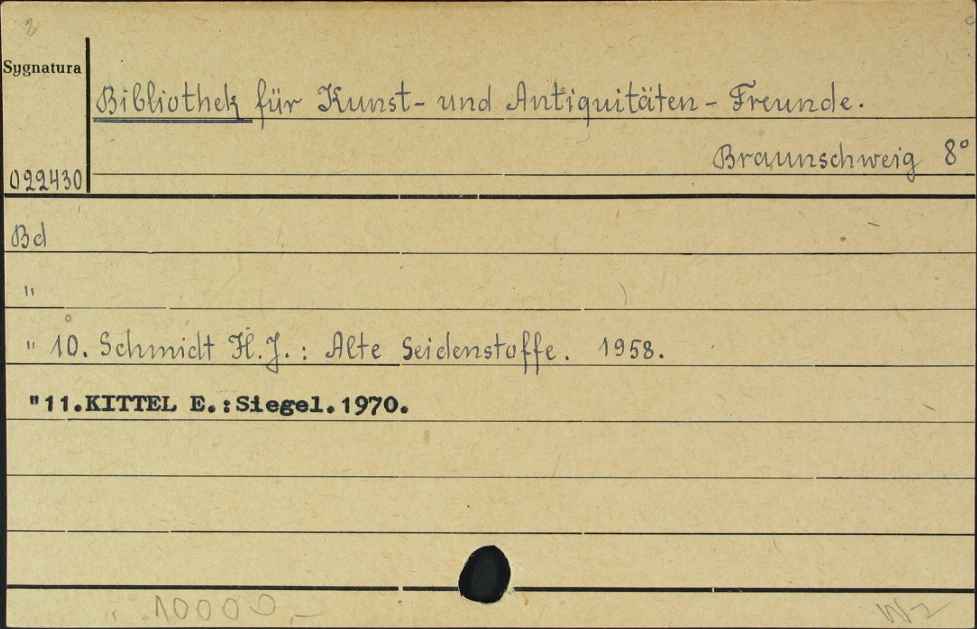 2
Sygnatura
Bibliothek für Kunst- und Antiquitäten-Freunde.
Braunschweig 8°
022430
Bd
"
" 10. Schmidt H.J.: Alte Seidenstoffe. 1958.
"11.KITTEL E.:Siegel.1970.
" 10000,-